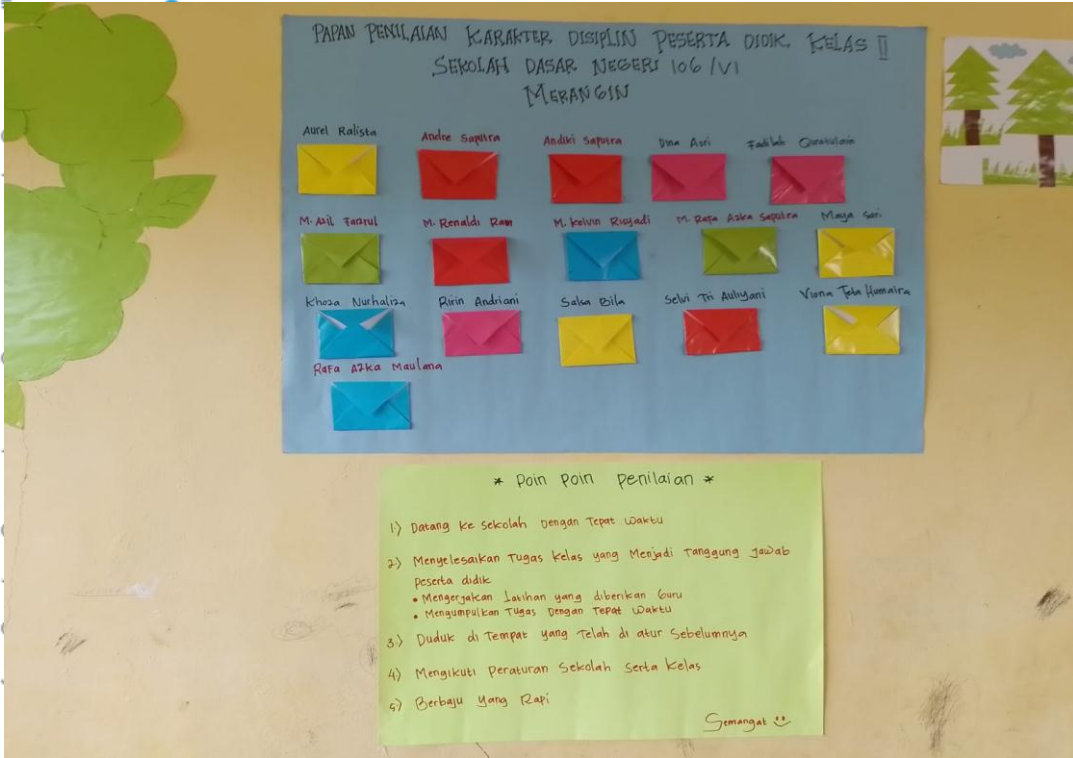 PAPAN PENILAIAN KARAKTER DISIPLIN PESERTA DIDIK KELAS II
SEKOLAH DASAR NEGERI 106 /VI
MERANGIN
Aurel Ralista Andre Saputra Andiki Saputra Dina Asri Fadilah Quratulain
M. Azil Fazrul M. Renaldi Ram M. Kelvin Rusyadi M. Rafa Azka Saputra Maya Sari
Khoza Nurhaliza Ririn Andriani Salsa Bila Selvi Tri Auliyani Viona Humaira
Rafa Azka Maulana
* Poin Poin Penilaian *
1.) Datang ke Sekolah Dengan Tepat Waktu
2.) Menyelesaikan Tugas Kelas yang Menjadi Tanggung Jawab
Peserta didik
• Mengerjakan Latihan yang diberikan Guru
• Mengumpulkan Tugas Dengan Tepat Waktu
3.) Duduk di Tempat yang Telah di atur Sebelumnya
4) Mengikuti Peraturan Sekolah Serta Kelas
5) Berbaju yang Rapi
Semangat